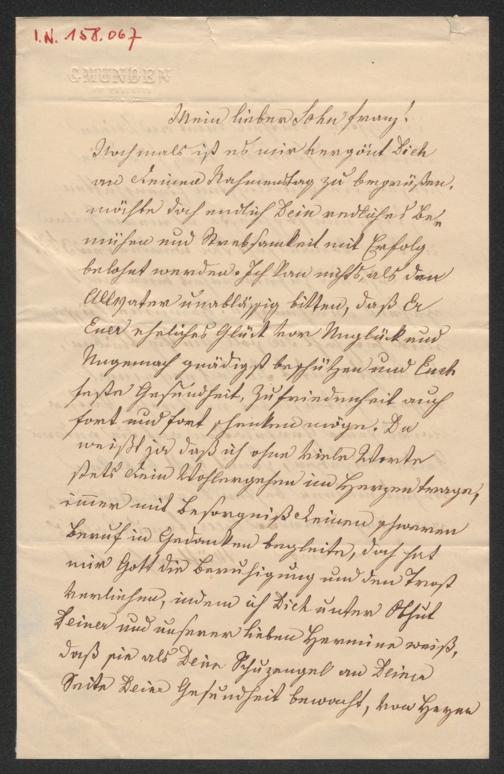 I.N. 158.067
GMUNDEN
Mein lieber Sohn Franz!
Nochmals ist es mir vergönt Dich
an Deinem Nahmenstag zu begrüßen,
möchte doch endlich Dein redliches Be=
mühen und Strebsamkeit mit Erfolg
belohnt werden. Ich kan nichts, als den
Allvater unablässig bitten, daß Er
Euer eheliches Glück vor Unglück und
Ungemach gnädigst beschützen und Euch
feste Gesundheit, Zufriedenheit auch
fort und fort schenken möge. Du
weißt ja daß ich ohne viele Worte
stets Dein Wohlergehen im Herzen trage,
immer mit Besorgniß Deinen schweren
Beruf in Gedanken begleite, doch hat
mir Gott die Beruhigung und den Trost
verliehen, indem ich Dich unter Obhut
Deiner und unserer lieben Hermine weiß,
daß sie als Dein Schuzengel an Deiner
Seite Deine Gesundheit bewacht, von Herzen